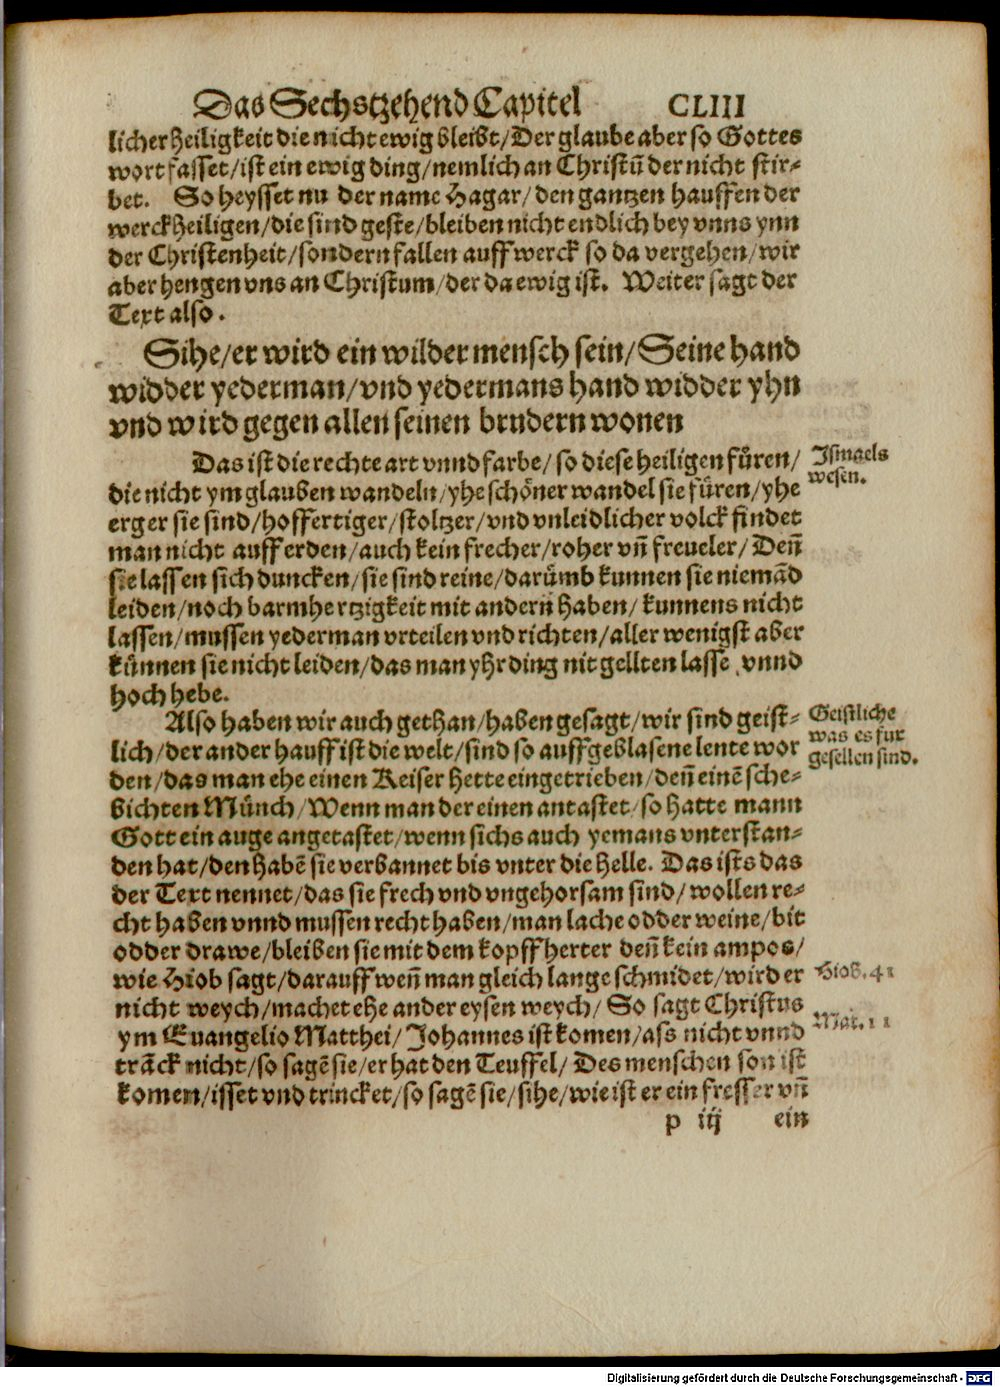 Das Sechstzehend Capitel CLIII
licher heiligkeit die nicht ewig bleibt/Der glaube aber so Gottes
wort fasset/ist ein ewig ding/nemlich an Christũ der nicht stir-
bet. So heysset nu der name Hagar/den gantzen hauffen der
werckheiligen/die sind geste/bleiben nicht endlich bey vnns ynn
der Christenheit/sondern fallen auff werck so da vergehen/wir
aber hengen vns an Christum/der da ewig ist. Weiter sagt der
Text also.
Sihe/er wird ein wilder mensch sein/Seine hand
widder yederman/vnd yedermans hand widder yhn
vnd wird gegen allen seinen brudern wonen
Das ist die rechte art vnnd farbe/so diese heiligen fůren/
Ismaels
wesen.
die nicht ym glauben wandeln/yhe schöner wandel sie füren/yhe
erger sie sind/hoffertiger/stoltzer/vnd vnleidlicher volck findet
man nicht auff erden/auch kein frecher/roher vñ freueler/Deñ
sie lassen sich duncken/sie sind reine/darümb kunnen sie niemãd
leiden/noch barmhertzigkeit mit andern haben/kunnens nicht
lassen/mussen yederman vrteilen vnd richten/aller wenigst aber
künnen sie nicht leiden/das man yhr ding nit gellten lasse vnnd
hoch hebe.
Also haben wir auch gethan/haben gesagt/wir sind geist-
Geistliche
was es fur
gesellen sind.
lich/der ander hauff ist die welt/sind so auffgeblasene leute wor
den/das man ehe einen Keiser hette eingetrieben/deñ einẽ sche-
bichten Münch/Wenn man der einen antastet/so hatte mann
Gott ein auge angetastet/wenn sichs auch yemans vnterstan-
den hat/den habẽ sie verbannet bis vnter die helle. Das ists das
der Text nennet/das sie frech vnd vngehorsam sind/wollen re-
cht haben vnnd mussen recht haben/man lache odder weine/bit
odder drawe/bleiben sie mit dem kopff herter deñ kein ampos/
wie Hiob sagt/darauff weñ man gleich lange schmidet/wird er
Hiob. 41
nicht weych/machet ehe ander eysen weych/So sagt Christus
ym Euangelio Matthei/Johannes ist komen/ass nicht vnnd
Mat. 11
trãck nicht/so sagẽ sie/er hat den Teuffel/Des menschen son ist
komen/isset vnd trincket/so sagẽ sie/sihe/wie ist er ein fresser vñ
p iij ein
Digitalisierung gefördert durch die Deutsche Forschungsgemeinschaft - DFG